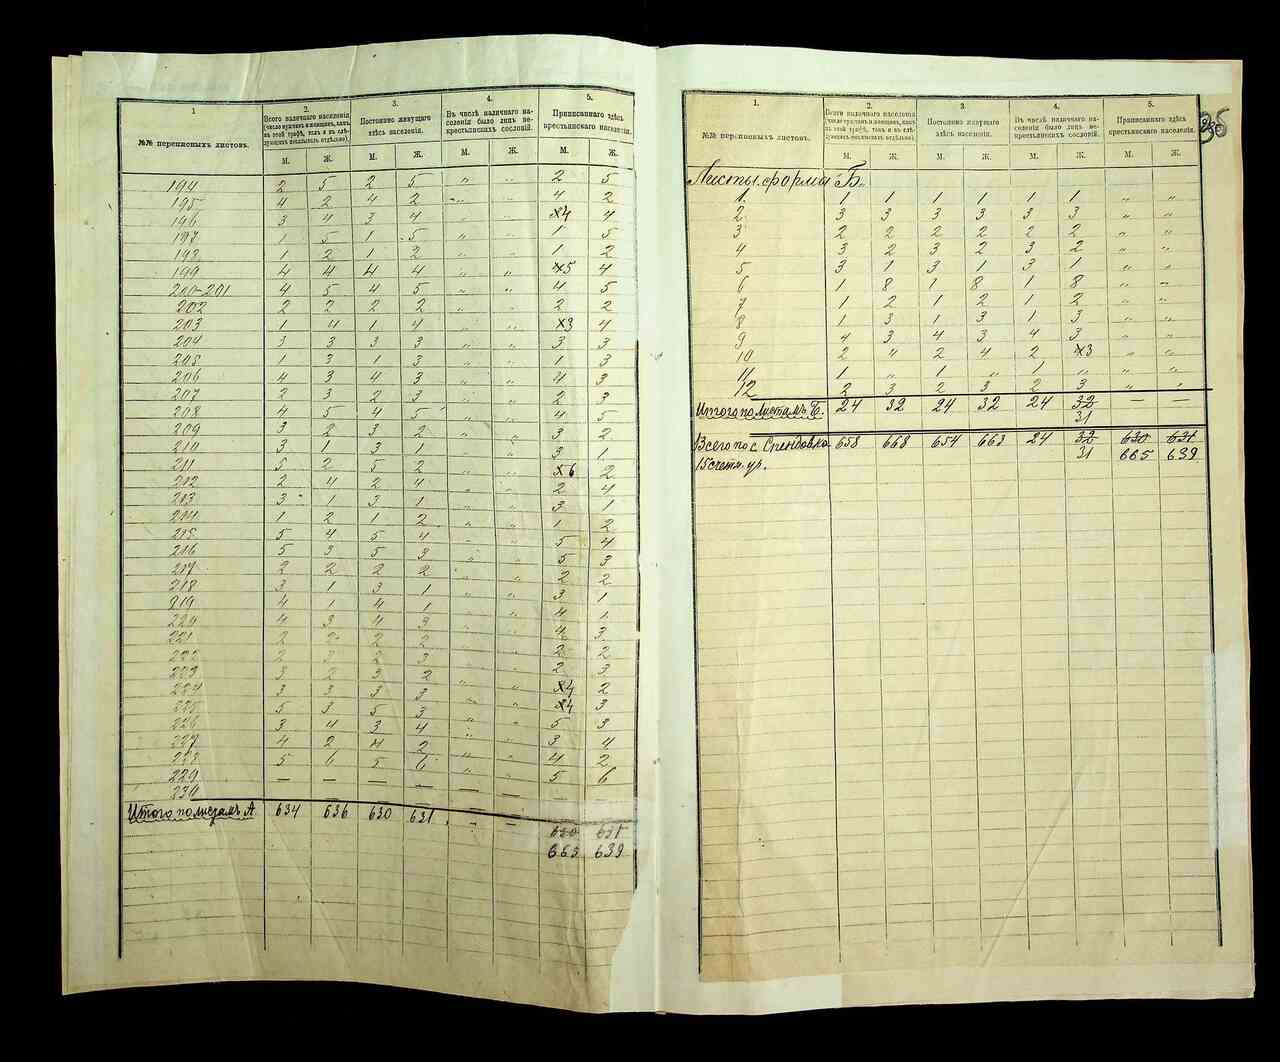 1
2.
3.
4.
5.
№№ переписныхъ листовъ.
Всего наличнаго населенія
(число мужчинъ и женщинъ, какъ
въ этой графѣ, такъ и въ слѣ-
дующихъ показывать отдѣльно).
Постоянно живущаго
здѣсь населенія.
Въ числѣ наличнаго на-
селенія было лицъ не-
крестьянскихъ сословій.
Приписаннаго здѣсь
крестьянскаго населенія.
М. Ж. М. Ж. М. Ж. М. Ж.
194 2 5 2 5 „ „ 2 5
195 4 2 4 2 „ „ 4 2
196 3 4 3 4 „ „ х4 4
197 1 5 1 5 „ „ 1 5
198 1 2 1 2 „ „ 1 2
199 4 4 4 4 „ „ х5 4
200-201 4 5 4 5 „ „ 4 5
202 2 2 2 2 „ „ 2 2
203 1 4 1 4 „ „ х3 4
204 3 3 3 3 „ „ 3 3
205 1 3 1 3 „ „ 1 3
206 4 3 4 3 „ „ 4 3
207 2 3 2 3 „ „ 2 3
208 4 5 4 5 „ „ 4 5
209 3 2 3 2 „ „ 3 2
210 3 1 3 1 „ „ 3 1
211 5 2 5 2 „ „ х6 2
212 2 4 2 4 „ „ 2 4
213 3 1 3 1 „ „ 3 1
214 1 2 1 2 „ „ 1 2
215 5 4 5 4 „ „ 5 4
216 5 3 5 3 „ „ 5 3
217 2 2 2 2 „ „ 2 2
218 3 1 3 1 „ „ 3 1
219 4 1 4 1 „ „ 4 1
220 4 3 4 3 „ „ 4 3
221 2 2 2 2 „ „ 2 2
222 2 3 2 3 „ „ 2 3
223 3 2 3 2 „ „ х4 2
224 3 3 3 3 „ „ х4 3
225 5 3 5 3 „ „ 5 3
226 3 4 3 4 „ „ 3 4
227 4 2 4 2 „ „ 4 2
228 5 6 5 6 „ „ 5 6
229 — — — — — — — —
230
Итого по листамъ А 634 636 630 631 — — 630 631
663 639
1.
2.
3.
4.
5.
№№ переписныхъ листовъ.
Всего наличнаго населенія
(число мужчинъ и женщинъ, какъ
въ этой графѣ, такъ и въ слѣ-
дующихъ показывать отдѣльно).
Постоянно живущаго
здѣсь населенія.
Въ числѣ наличнаго на-
селенія было лицъ не-
крестьянскихъ сословій.
Приписаннаго здѣсь
крестьянскаго населенія.
М. Ж. М. Ж. М. Ж. М. Ж.
Листы форма Б.
1. 1 1 1 1 1 1 „ „
2. 3 3 3 3 3 3 „ „
3 2 2 2 2 2 2 „ „
4 3 2 3 2 3 2 „ „
5 3 1 3 1 3 1 „ „
6 1 8 1 8 1 8 „ „
7 1 2 1 2 1 2 „ „
8 1 3 1 3 1 3 „ „
9 4 3 4 3 4 3 „ „
10 2 „ 2 4 2 х3 „ „
11 1 „ 1 „ 1 „ „ „
12 2 3 2 3 2 3 „ „
Итого по листамъ Б. 24 32 24 32 24 32 — —
31
Всего по с. 658 668 654 663 24 32 630 631
15 счетн. уч. 31 665 639